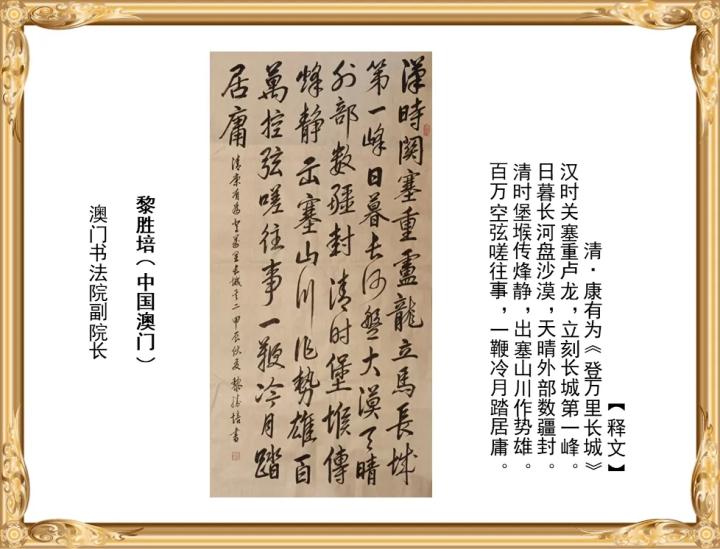 【释文】
清·康有为《登万里长城》
汉时关塞重卢龙，立刻长城第一峰。
日暮长河盘沙漠，天晴外部数疆封。
清时堡堠传烽静，出塞山川作势雄。
百万空弦嗟往事，一鞭冷月踏居庸。
漢時関塞重盧龍立馬長城
第一峰日暮長河盤大漠天晴
外部数疆封清時堡堠傳
烽静出塞山川作勢雄百
萬控弦嗟往事一鞭冷月踏
居庸
清康有為登萬里長城之二甲辰夏黎勝培書
黎胜培（中国澳门）
澳门书法院副院长